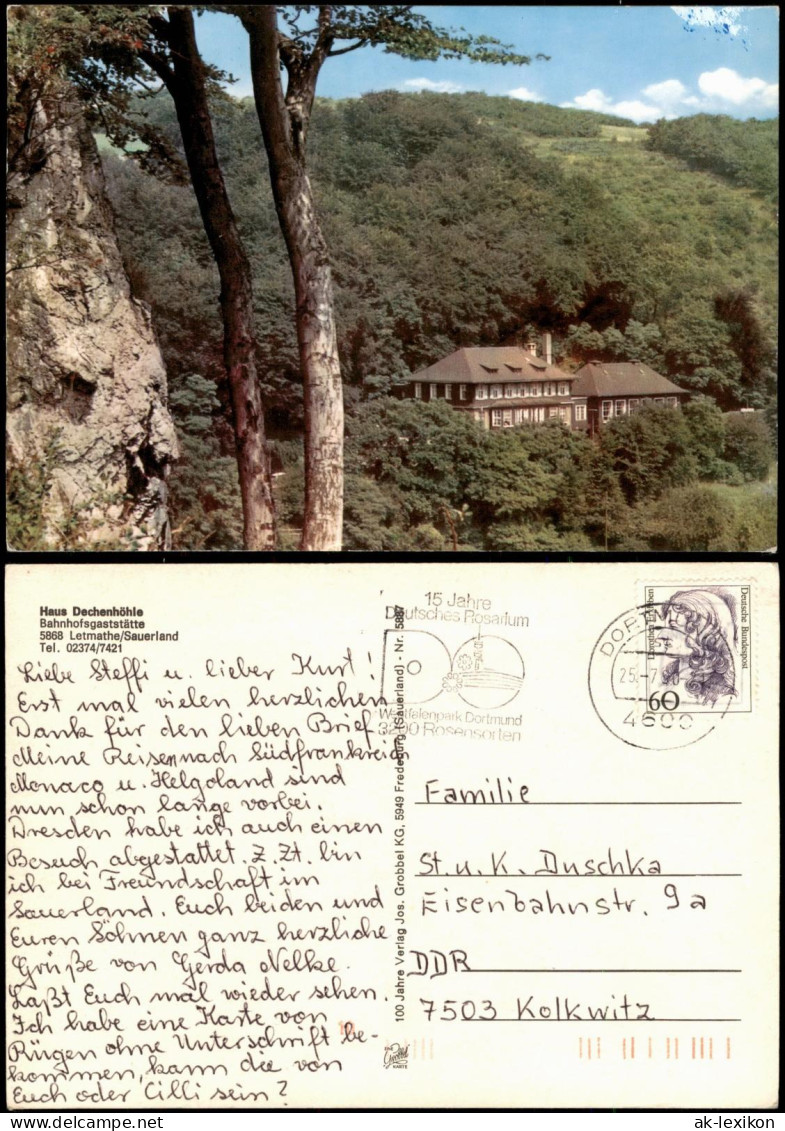 Haus Dechenhöhle
Bahnhofsgaststätte
5868 Letmathe/Sauerland
Tel. 02374/7421
Liebe Steffi u. lieber Kurt!
Erst mal vielen herzlichen
Dank für den lieben Brief.
Meine Reisen nach Südfrankreich
Monaco u. Helgoland sind
nun schon lange vorbei.
Dresden habe ich auch einen
Besuch abgestattet. Z. Zt. bin
ich bei Freundschaft im
Sauerland. Euch beiden und
Euren Söhnen ganz herzliche
Grüße von Gerda Nelke.
Laßt Euch mal wieder sehen.
Ich habe eine Karte von
Rügen ohne Unterschrift be-
kommen, kann die von
Euch oder Cilli sein?
100 Jahre Verlag Jos. Grobbel KG, 5949 Fredeburg (Sauerland) - Nr. 5887
15 Jahre
Deutsches Rosarium
Westfalenpark Dortmund
3200 Rosensorten
DORTMUND
4600
Deutsche Bundespost
60
Familie
St. u. K. Duschka
Eisenbahnstr. 9a
DDR
7503 Kolkwitz
Grobbel
KARTE
ak-lexikon